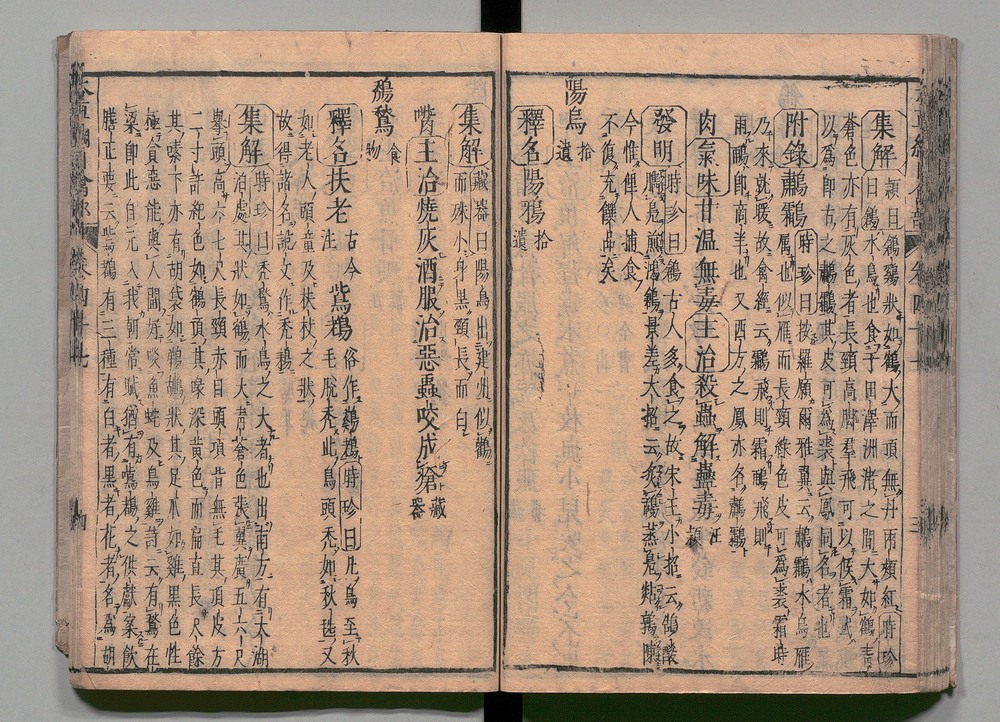 集解 頴曰鶬雞狀如鶴大而頂無丹兩頰紅時珍
曰鶬水鳥也食于田澤洲渚之間大如鶴青
蒼色亦有灰色者長頸高脚羣飛可以候霜或
以爲即古之鷫鸘其皮可爲裘與鳳同名者也
附錄鷫鸘 時珍曰按羅願爾雅翼云鷫鸘水鳥雁
屬也似雁而長頸綠色皮可爲裘霜時
乃來就暖故禽經云鸘飛則霜鷫飛則
雨鷫即商羊也又西方之鳳亦名鷫鸘
肉氣味甘温無毒主治殺蟲解蠱毒 汪頴
發明 時珍曰鶬古人多食之故宋玉小招云鵠酸
臇鳧煎鴻鶬景差大招云炙鴰蒸鳧煔鶉敶
今惟俚人捕食
不復充饌品矣
陽烏 拾遺
釋名陽鴉 拾遺
集解 藏器曰陽烏出建州似鸛
而殊小身黑頸長而白
嘴主治燒灰酒服治惡蟲咬成瘡 藏器
鶖 食物
釋名扶老 古今注 鴜 俗作鶖 時珍曰凡鳥至秋
毛脫禿此鳥頭禿如秋毨又
如老人頭童及扶杖之狀
故得諸名說文作禿
集解 時珍曰禿鶖水鳥之大者也出南方有大湖
泊處其狀如鶴而大青蒼色張翼廣五六尺
舉頭高六七尺長頸赤目頭項皆無毛其頂皮方
二寸許紅色如鶴頂其喙深黃色而扁直長尺餘
其嗉下亦有胡袋如鵜鶘狀其足爪如雞黑色性
極貪惡能與人鬬好啖魚蛇及鳥雛詩云有鶖在
梁即此自元入我朝常賦猶有鶖之供獻案飲
膳正要云鴜有三種有白者黑者花者名爲胡